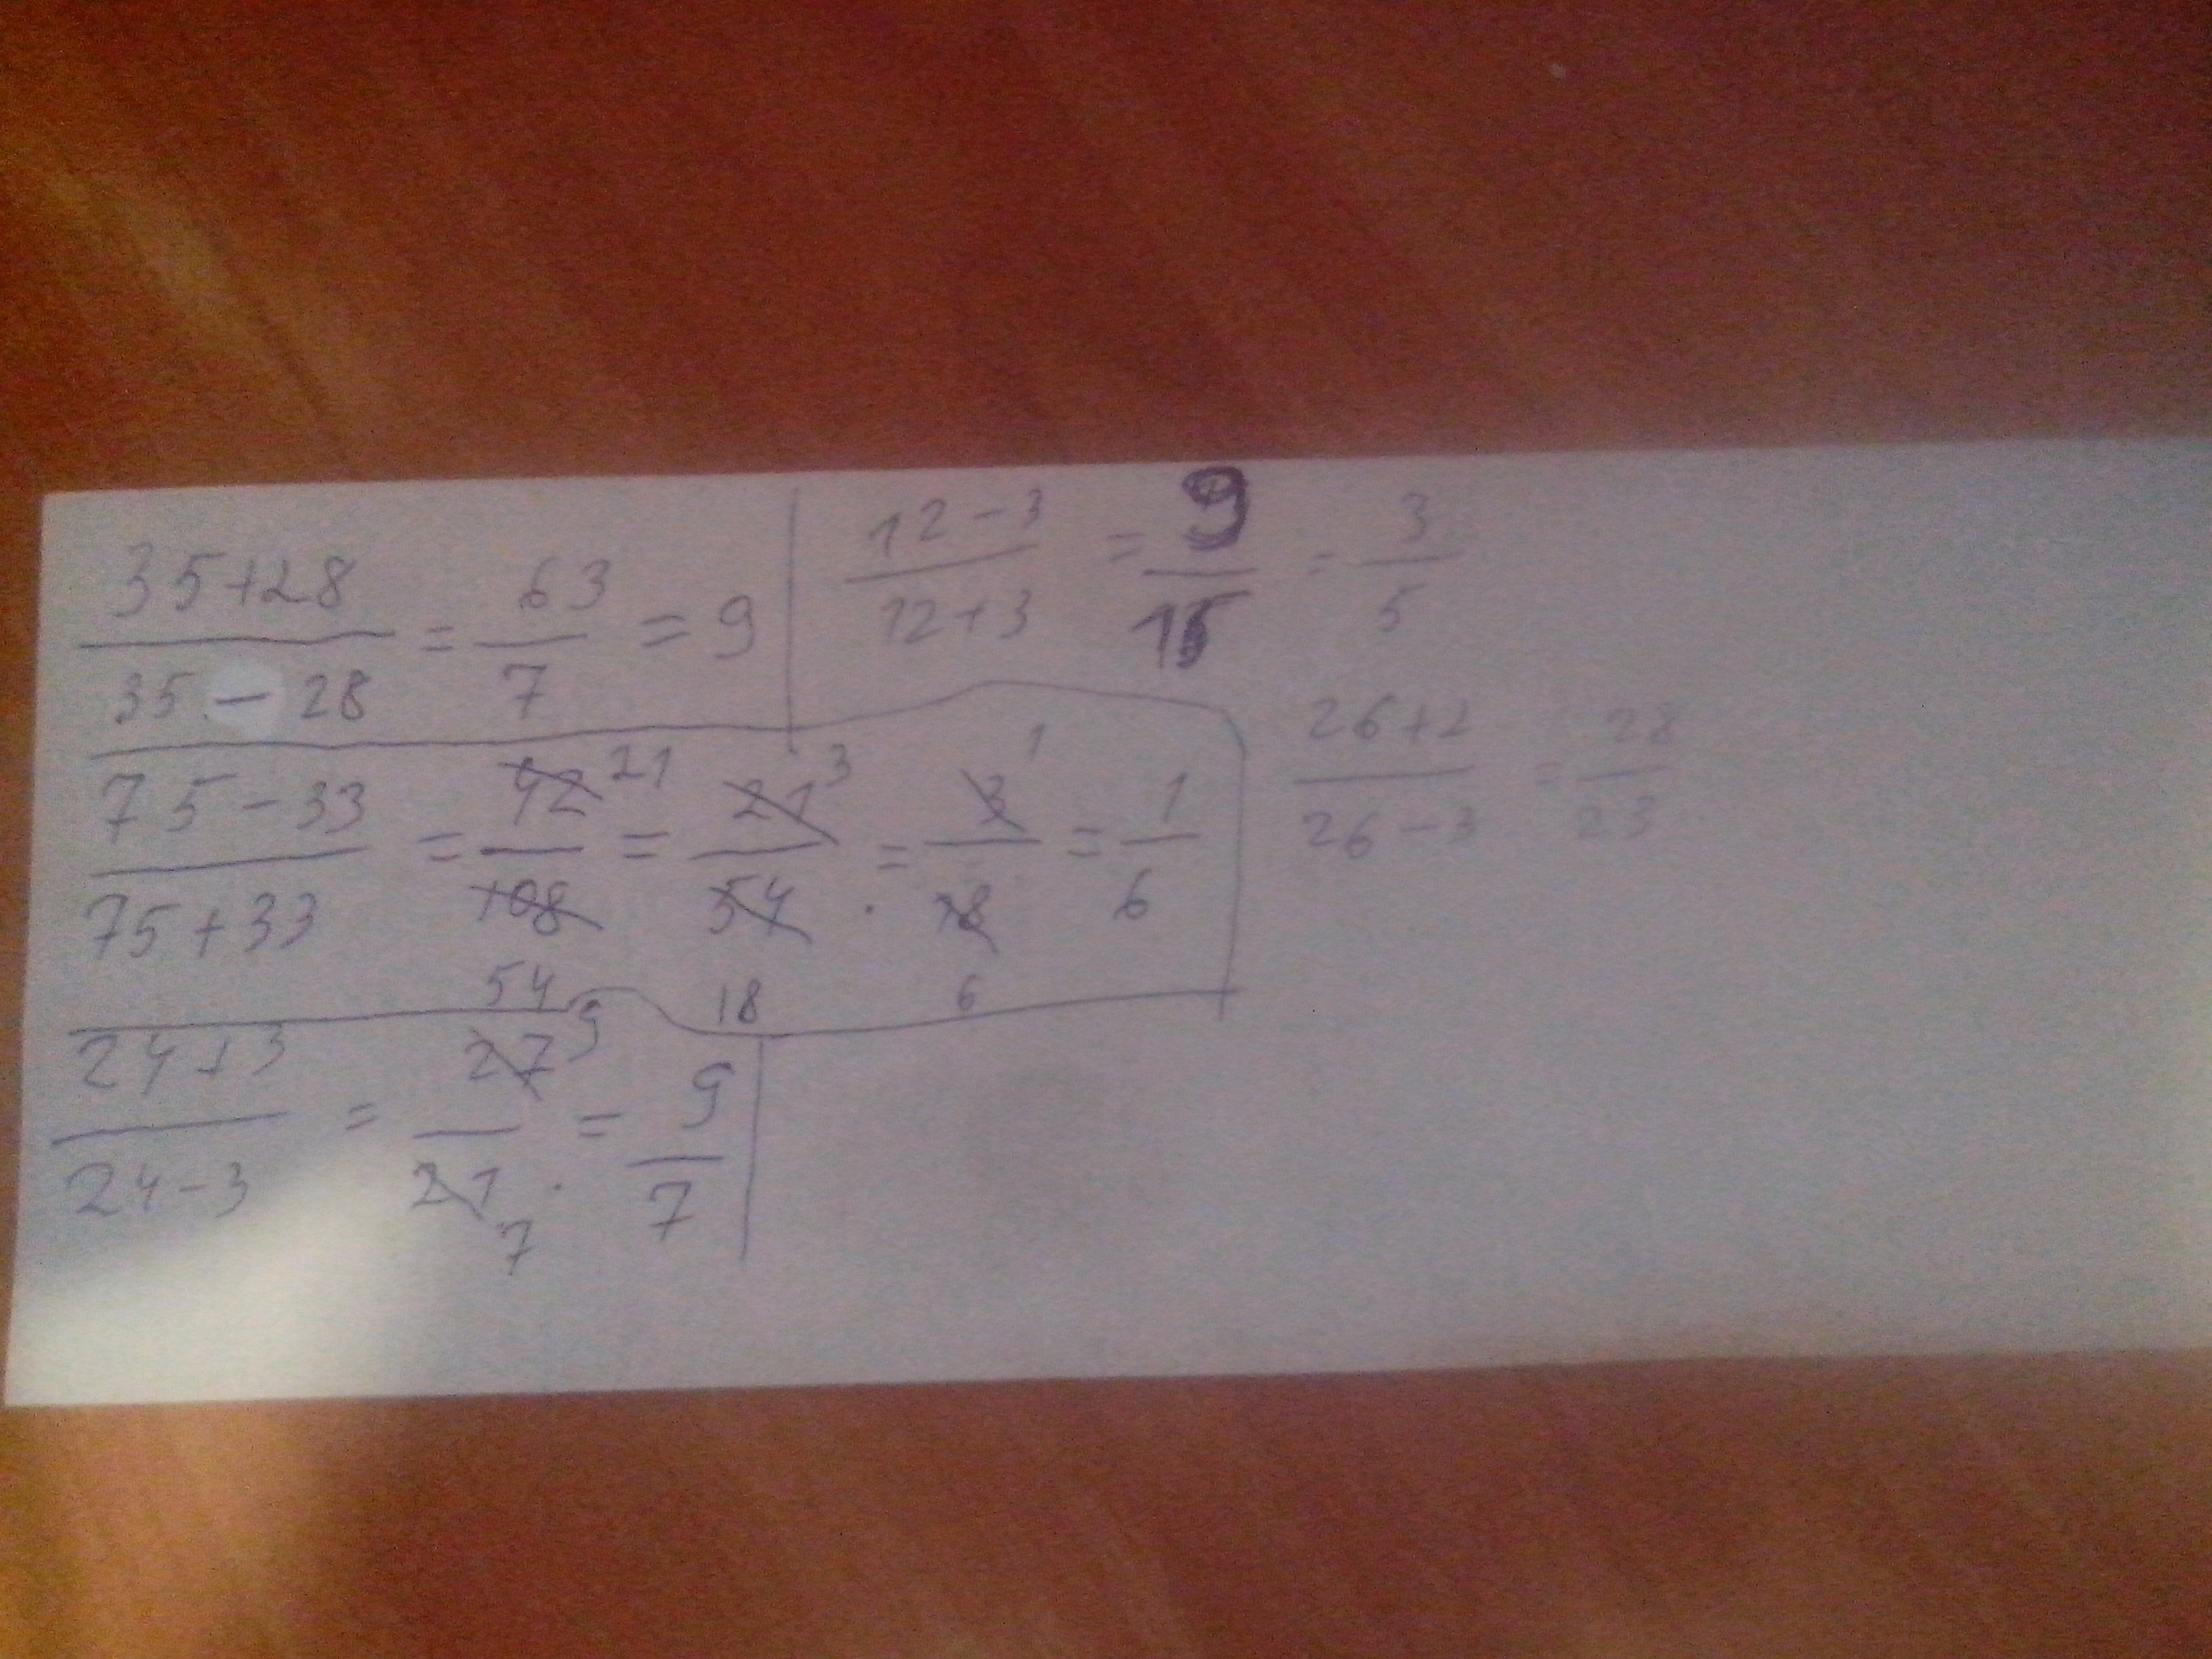 35+28
35 – 28
= 63
7
= 9
12 – 3
12 + 3
= 9
15
= 3
5
75 – 33
75 + 33
= 42 21
108
54
= 21 3
54 .
18
= 3 1
18
6
= 1
6
26+2
26 – 3
= 28
23
24+3
24 – 3
= 27 9
21 .
7
= 9
7